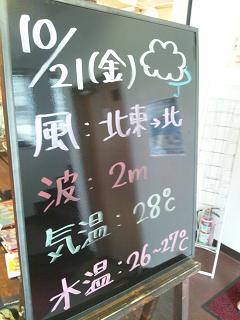 10/21(金)
風：北東→北
波：2m
気温：28℃
水温：26~27℃